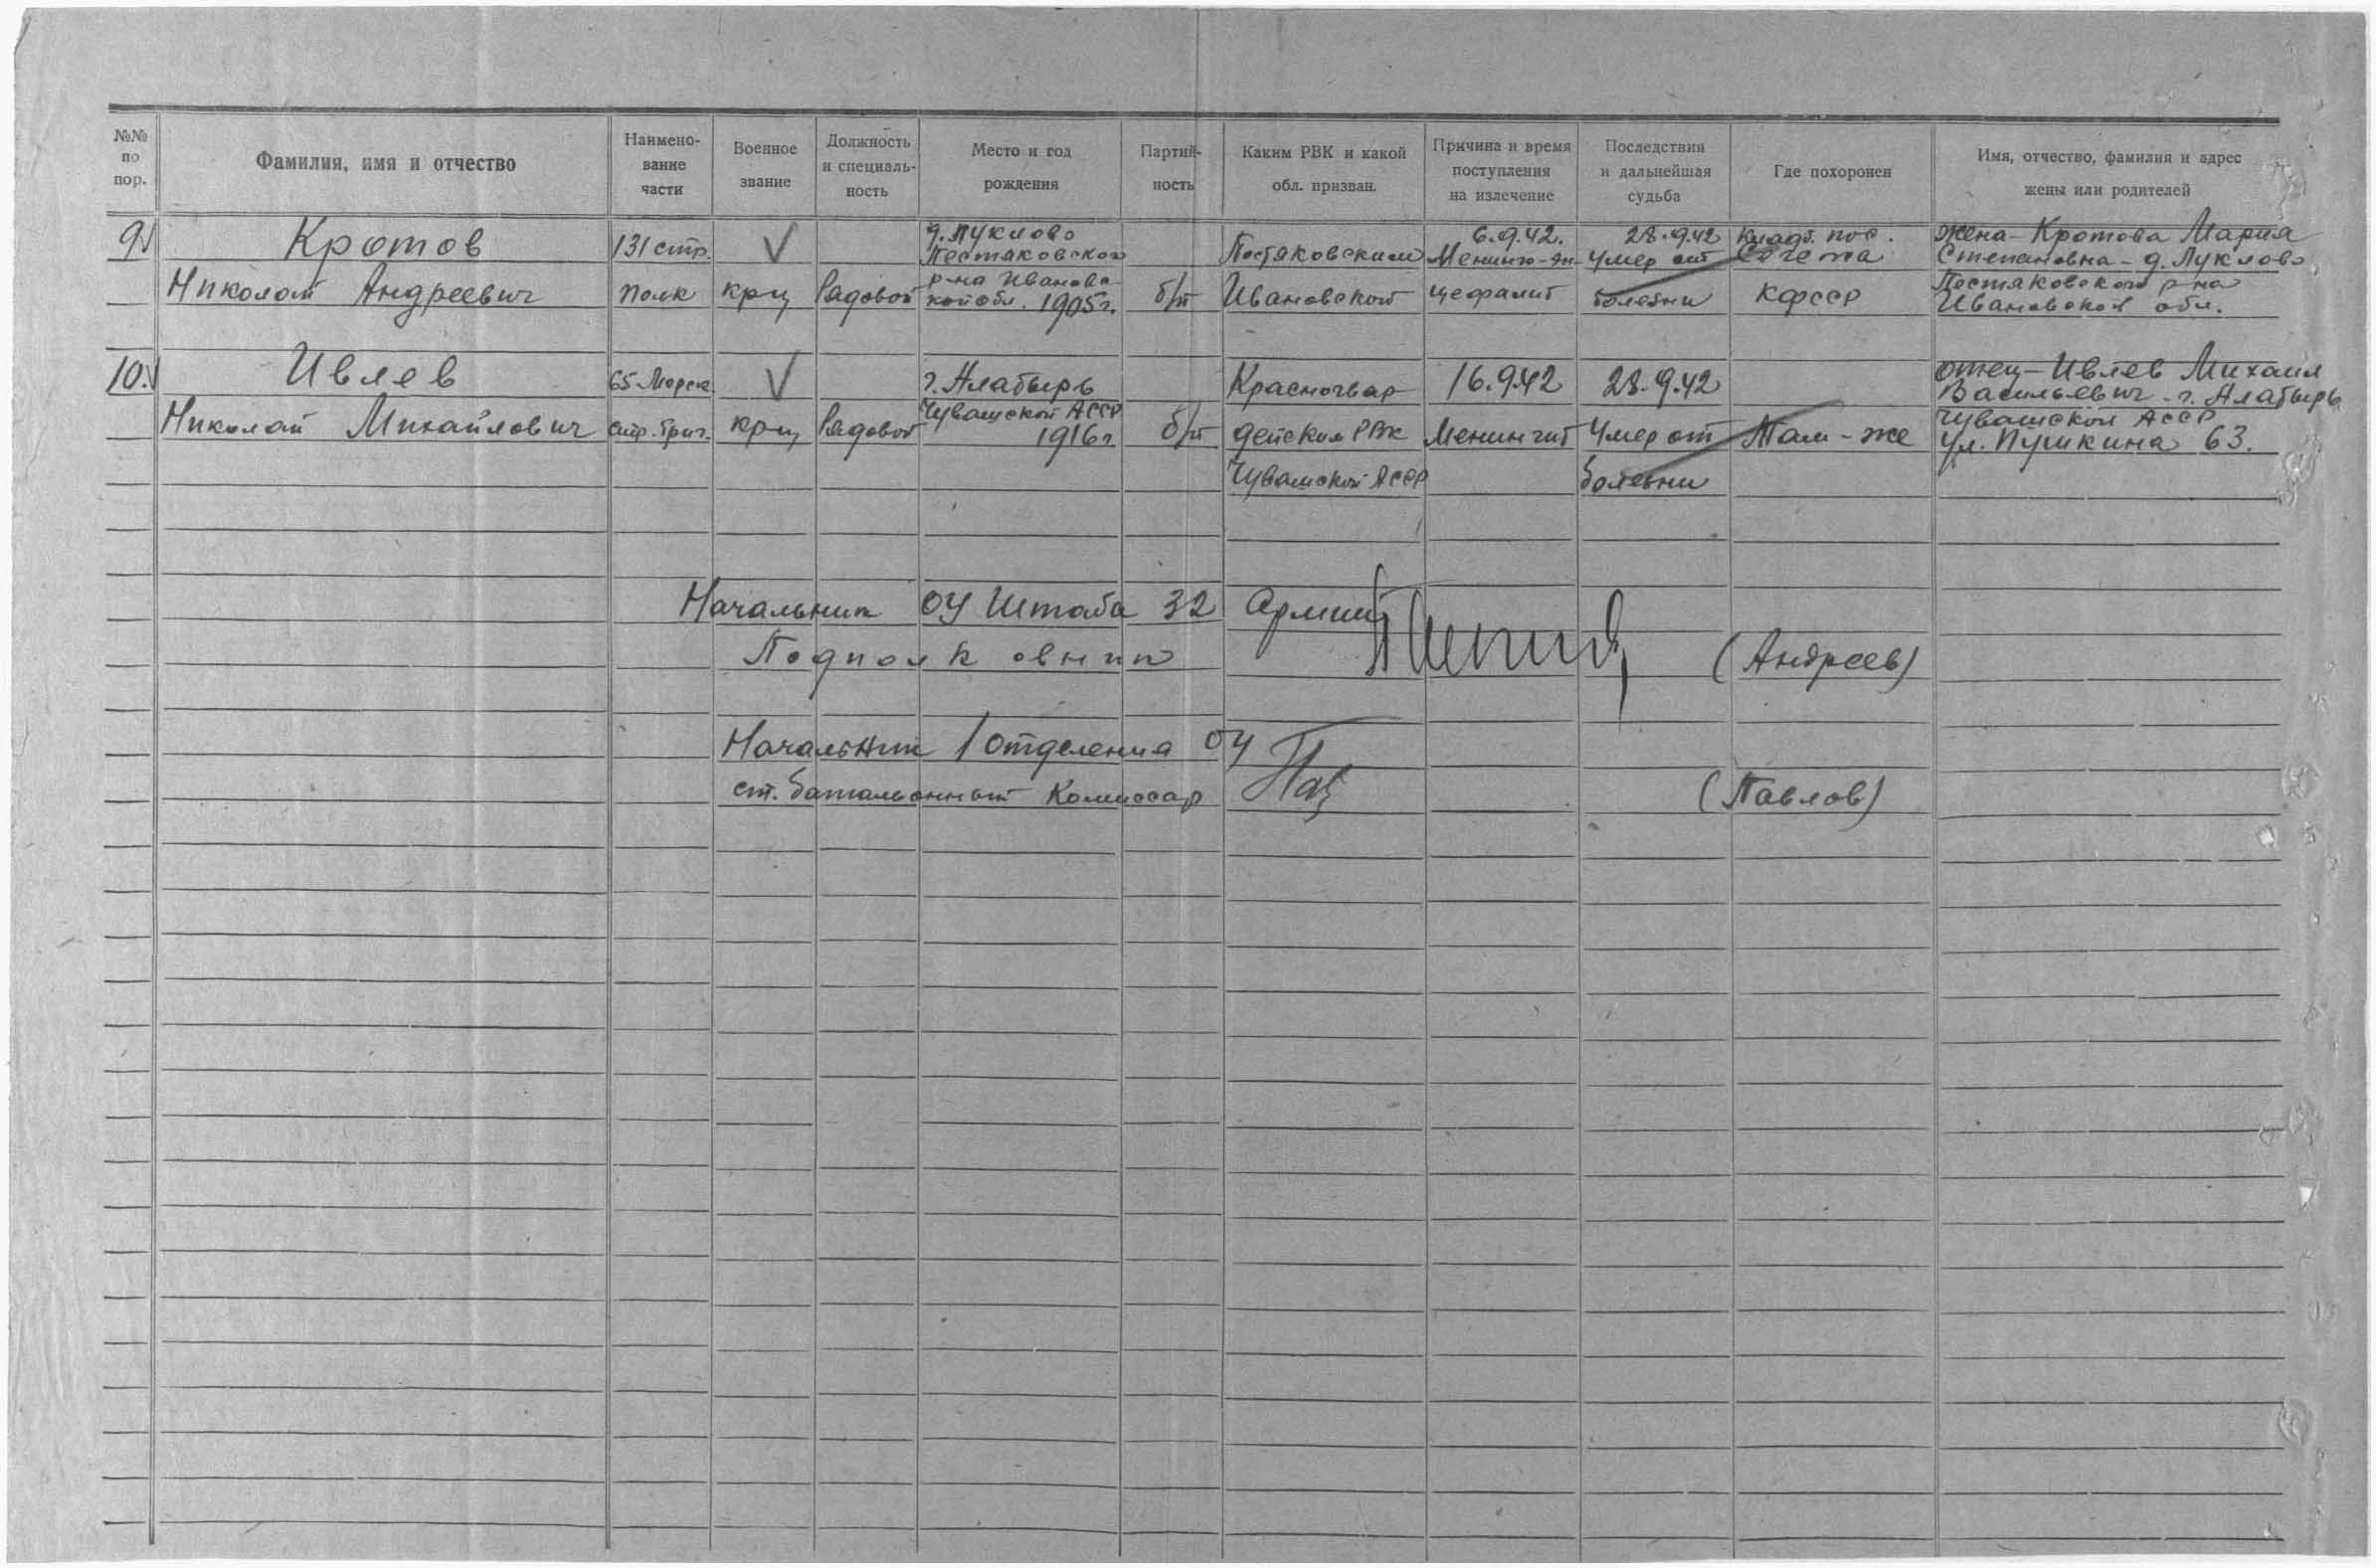 №№ по пор.
Фамилия, имя и отчество
Наимено-
вание
части
Военное
звание
Должность
и специаль-
ность
Место и год
рождения
Партий-
ность
Каким РВК и какой
обл. призван.
Причина и время
поступления
на излечение
Последствия
и дальнейшая
судьба
Где похоронен
Имя, отчество, фамилия и адрес
жены или родителей
9.
Кротов
Николай Андреевич
131 стр.
полк
крц
Рядовой
д. Луклово
Пестяковского
р-на Иванов-
ской обл. 1905 г.
б/п
Пестяковским
Ивановской
6.9.42.
Менинго-эн-
цефалит
28.9.42
Умер от
болезни
Кладб. пос.
Сегежа
КФССР
Жена - Кротова Мария
Степановна - д. Луклово
Пестяковского р-на
Ивановской обл.
10.
Ивлев
Николай Михайлович
65 Морск.
стр. бриг.
крц
Рядовой
г. Алатырь
Чувашской АССР
1916 г
б/п
Красногвар-
дейским РВК
Чувашской АССР
16.9.42
Менингит
28.9.42
Умер от
болезни
Там-же
отец - Ивлев Михаил
Васильевич - г. Алатырь
Чувашской АССР
ул. Пушкина 63.
Начальник ОУ Штаба 32 Армии
Подполковник (Андреев)
Начальник 1 отделения ОУ
ст. батальонный Комиссар (Павлов)